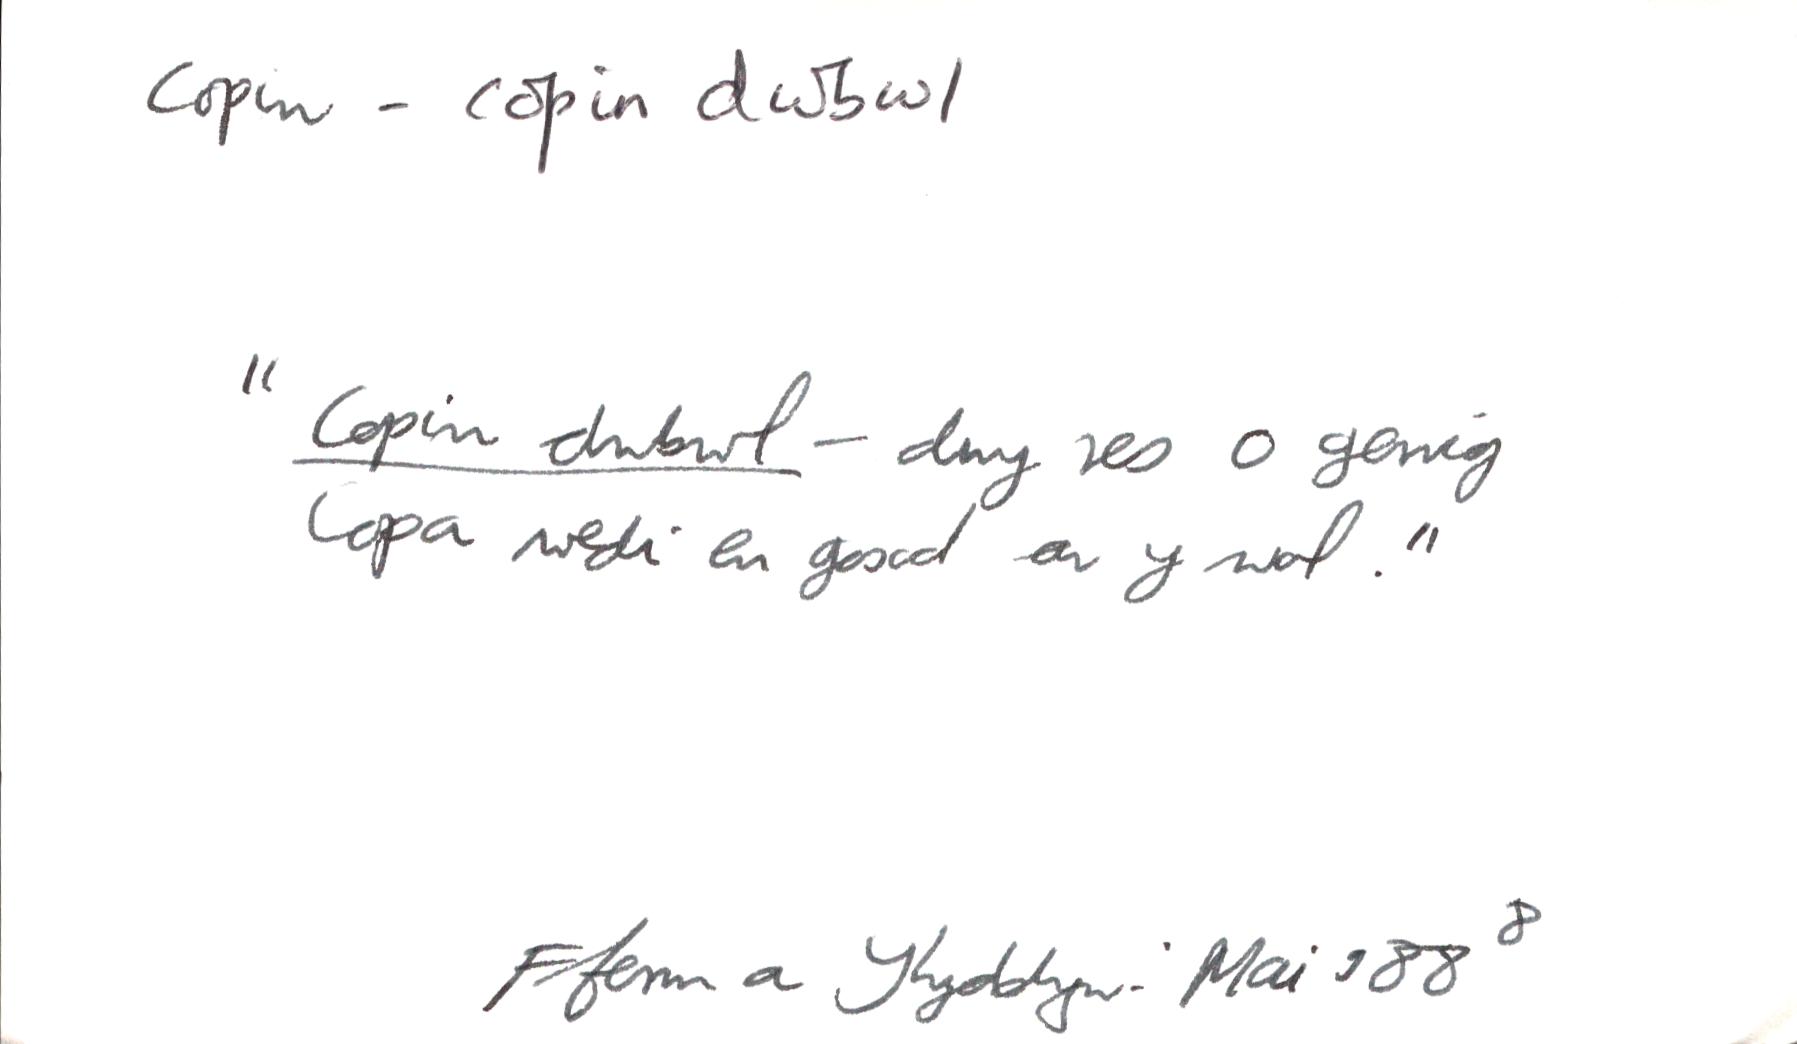 Copin - copin dwbwl
"Copin dwbwl - dwy res o gerrig
Copa wedi eu gosod ar y wal."
Fferm a Thyddyn: Mai '88 8